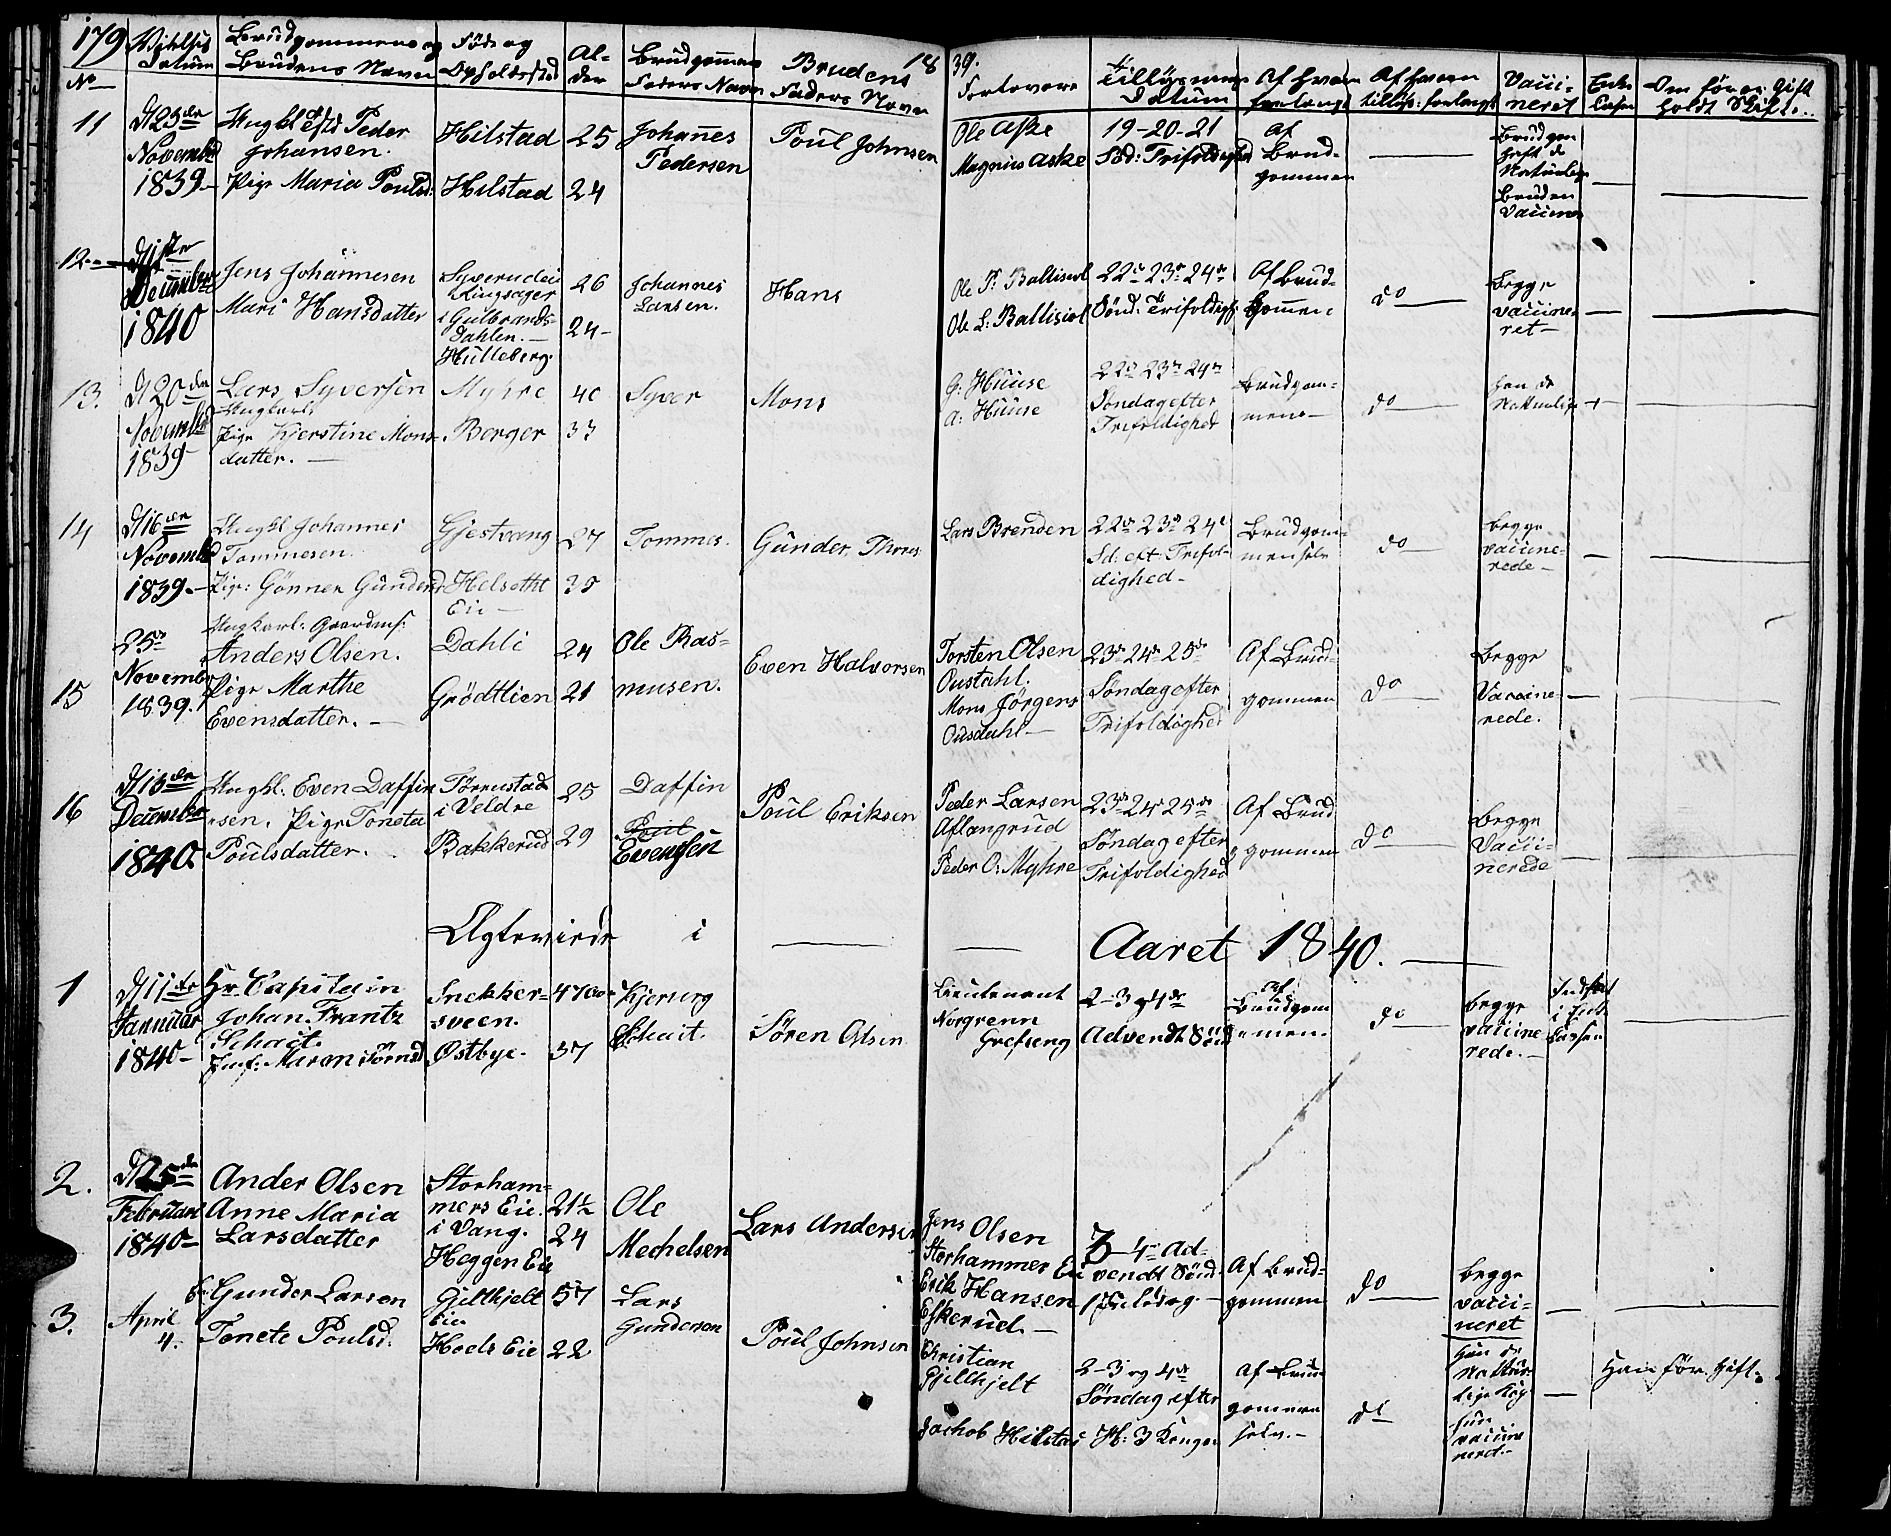 179 Vielses Datum
Brudgommens og Brudens Navn
Føde og Opholdssted
Al- der
Brudgommens Faders Navn
Brudens Faders Navn
18 39.
Forlovere
Tillysnings Datum
Af hvem forlangt
Af hvem tillys: forlangt
Vacci- neret
Enke Cassen
Om før er Gift holdt Skifte.
No
11 23de Novembr 1839 –
Ungkl Peder Johansen.
Pige Maria Poulsd:
Hilstad
Hilstad
25
24
Johannes Pedersen
Poul Johnsen
Ole Aske
Magnus Aske
19-20-21 Sød: Trifoldighed
Af Brud- gommen
Brudgom havt de Naturlige
Bruden Vaccineret
12 – 1ste Decembr 1840
Jens Johannesen
Mari Hansdatter
Ringsager
i Gulbrands- Dahlen. –
Hulleberg.
26
24 –
Johannes Larsen.
Hans
Ole P: Ballisiol
Ole L: Ballisiol
22de 23de 24de Sønd: Trifoldigh:
Af Brud- gommen
do
begge vaccine- ret –
13. 20de Novembr 1839 –
Lars Syversen
Ungkarl
Pige Kjerstine Mons- datter. –
Myhre
Berger
40
33
Syver
Mons
G: Huuse
A: Huuse
22de 23de 24de Søndag efter Trifoldighed
Brudgom- mens –
do
han de Naturlige
14 16de Novembr 1839. –
Ungkl Johannes Tommesen
Pige: Gønner Gunders
Gjestvang
Helsetht Eie –
27
35
Tommes.
Gunder Thoms
Lars Brenden
22de 23de 24de Sd: eft Trifol- dighed –
Brudgom- men selv
do
begge vaccine- rede –
15 25de Novembr 1839.
Ungkarl: Gaardms:
Anders Olsen.
Pige Marthe Evensdatter. –
Dahli
Grødtlien
24
21
Ole Ras- musen.
Even Halvorsen
Torsten Olsen Oustahl.
Mons Jørgens Ousdahl –
23de 24de 25de Søndag efter Trifoldighed
Af Brud- gommen
do
begge Vaccine- rede.
16 13de Decembr 1840.
Ungkl. Even Daffin- sen. Pige Toneta Poulsdatter.
Tørrustad i Veldre
Bakkerud
25
29
Daffin Evensen
Poul Eriksen
Peder Larsen Aflangrud
Peder O: Myhre
23de 24de 25de Søndag efter Trifoldighed
Af Brud gommen
do
begge Vacci- nerede
Ægteviede i – – Aaret 1840. –
1 11te Januar 1840 –
Hr Capitain Johan Frantz Schait.
Jmf: Maren Sørnsd
Snekker- sveen.
Østbye.
47
37
Schait.
Søren Olsen
Lieutenant Norgrenn
Grefseng
2-3 og 4de Advendt Sønd
Af Brudgom- men.
do
begge vaccine- rede. –
Indsat i Enke Cassen
2. 25de Februar 1840 –
Ander Olsen
Anne Maria Larsdatter
Storham- mers Eie. i Vang.
Heggen Eie
21½
24
Ole Mechelsen
Lars Andersen
Jens Olsen Storhammer Eie
Erik Hansen Eskerud. –
3 – 4de Ad- vendt Sønd
Af Brud- gommen
do
begge vacci- neret
3. April 4.
Gunder Larsen
Tonete Poulsd.
Gjellhjelt Eie
Hoels Eie
57
22
Lars Gundersen
Poul Johnsen
Christian Gjellhjelt
Jachob Hilstad
2-3 og 4de Søndag efter H: 3 Konger
Af Brud- gommen selv. –
do
han de Naturlige
hun vaccineret. –
Han før Gift.